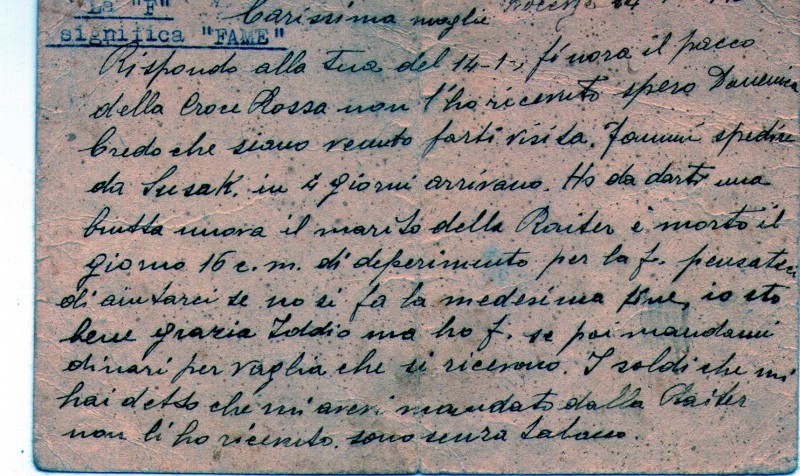 La "F"
significa "FAME"
Carissima moglie
Rispondo alla tua del 14-1-, finora il pacco
della Croce Rossa non l'ho ricevuto spero Domenica
Credo che siano venuto farti visita. Fammi spedire
da Susak, in 4 giorni arrivano. Ho da darti una
brutta nuova il marito della Raiter è morto il
giorno 16 c. m. di deperimento per la f. pensateci
di aiutarci se no si fa la medesima fine, io sto
bene grazia Iddio ma ho f. se poi mandami
dinari per vaglia che si ricevono. I soldi che mi
hai detto che mi avevi mandato dalla Raiter
non li ho ricevuto. sono senza tabacco.